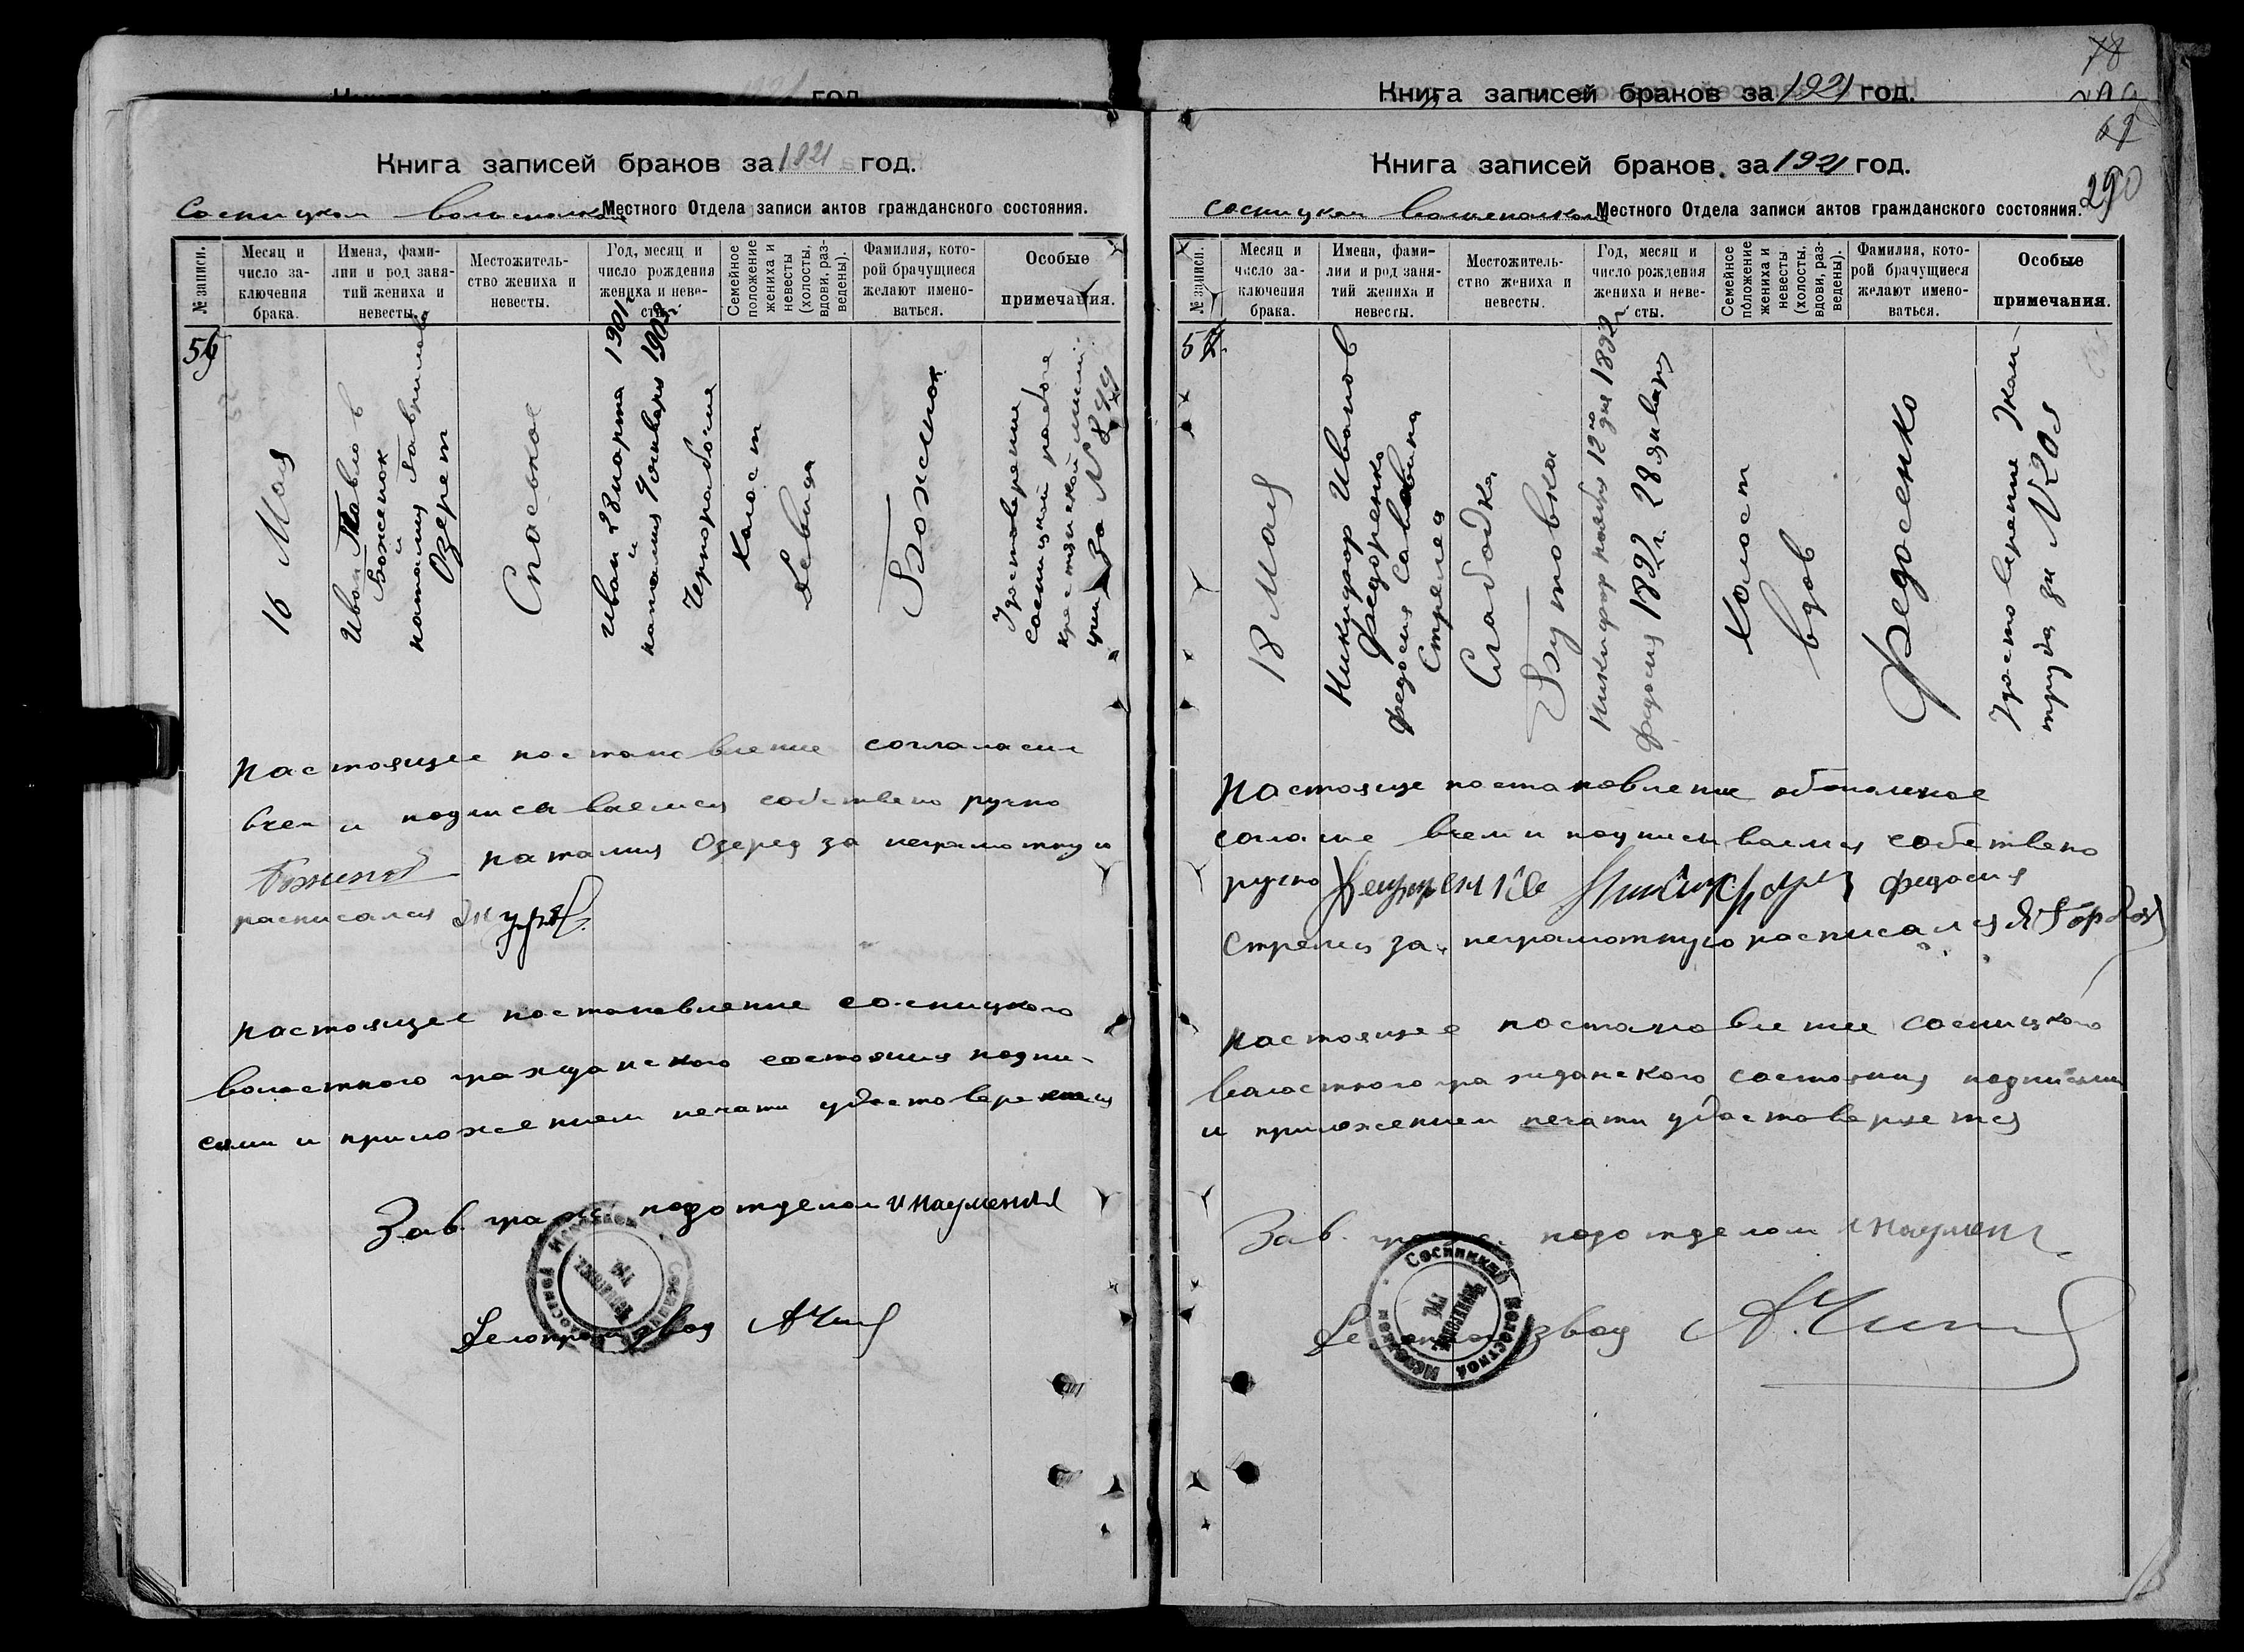 Книга записей браков за 1921 год.
Книга записей браков за 1921 год.
Местного Отдела записи актов гражданского состояния.
№ записи.
Месяц и число за-
ключения
брака.
Имена, фами-
лии и род заня-
тий жениха и
невесты.
Местожитель-
ство жениха и
невесты.
Год, месяц и
число рождения
жениха и неве-
сты.
Семейное
положение
жениха и
невесты
(холосты,
вдовы, раз-
ведены).
Фамилия, кото-
рой брачущиеся
желают имено-
ваться.
Особые
примечания.
56
16 Мая
Иван Павлов
Боженок
и
наталия Гаврилова
Озерет
Спаськое
Иван 28 марта 1901 г
и
наталия Января 1903 г.
Чернорабочие
Холост
Девица
Боженок
Удостоверение
за № 849
настоящее постановление
всем и подписываемся собствено ручно
наталия за неграмотную
расписался
настоящее постановление сосницкого
волостного гражданского состояния подпи-
сями и приложением печати удостоверяется
Зав. граж. подотделом И Науменко
Делопроизвод
Книга записей браков за 1921 год.
78
290
Книга записей браков за 1921 год.
Местного Отдела записи актов гражданского состояния.
№ записи.
Месяц и
число за-
ключения
брака.
Имена, фами-
лии и род заня-
тий жениха и
невесты.
Местожитель-
ство жениха и
невесты.
Год, месяц и
число рождения
жениха и неве-
сты.
Семейное
положение
жениха и
невесты
(холосты,
вдови, раз-
ведены).
Фамилия, кото-
рой брачущиеся
желают имено-
ваться.
Особые
примечания.
57.
18 Мая
Никифор Иванов
Федоренко
федосия Саввина
Стреля
Слабодка
Бутовка
Никифор ноября 12го дня
федосия 1892 г. 28 января
Холост
вдов
Федосенко
Удостоверение
труда за № 208
настояще постановление
согласие всем и подписываемся собствено
ручно Никифор федосия
Стреля за неграмотную росписался Я
настоящее постановление сосницкого
волостного гражданского состояния подписями
и приложением печати удостоверяется
Зав. граж. подотделом
Сосницкий Волостной
Делопроизвод